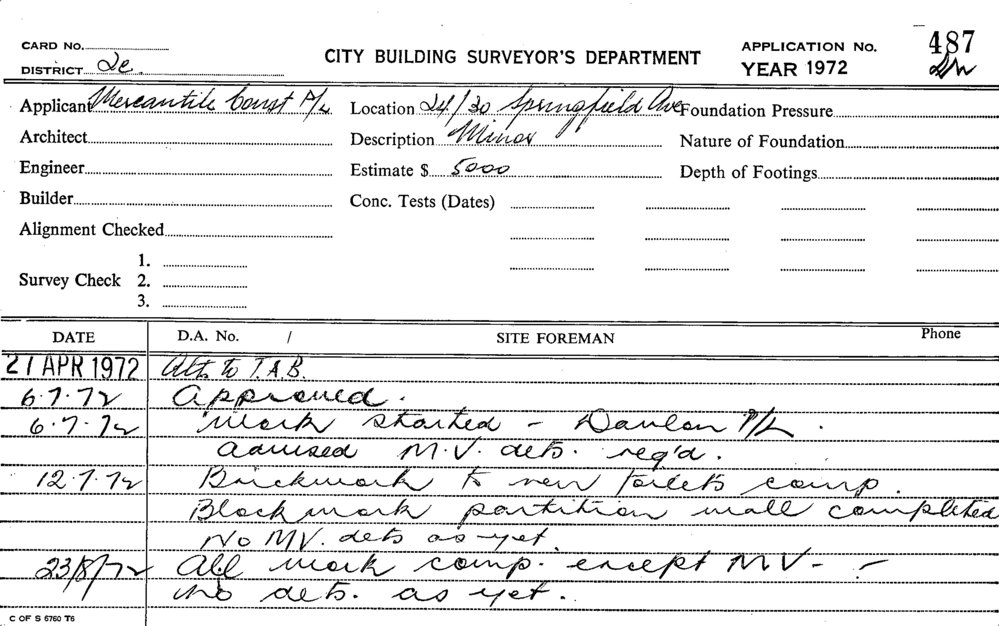 CARD No.
DISTRICT 2e.
CITY BUILDING SURVEYOR'S DEPARTMENT
APPLICATION No. 487
YEAR 1972
Applicant Mercantile Const P/L
Location 24/30 Springfield Ave
Foundation Pressure
Architect
Description Minor
Nature of Foundation
Engineer
Estimate $ 5000
Depth of Footings
Builder
Conc. Tests (Dates)
Alignment Checked
Survey Check 1.
2.
3.
DATE D.A. No. / SITE FOREMAN Phone
21 APR 1972 Alts to T.A.B.
6.7.72 Approved.
6.7.72 Work started - Danlon P/L.
advised M.V. dets. req'd.
12.7.72 Brickwork to new toilets comp.
Blockwork partition wall completed
No MV. dets as yet.
23/8/72 All work comp. except MV - -
no dets. as yet.
C OF S 6760 T6